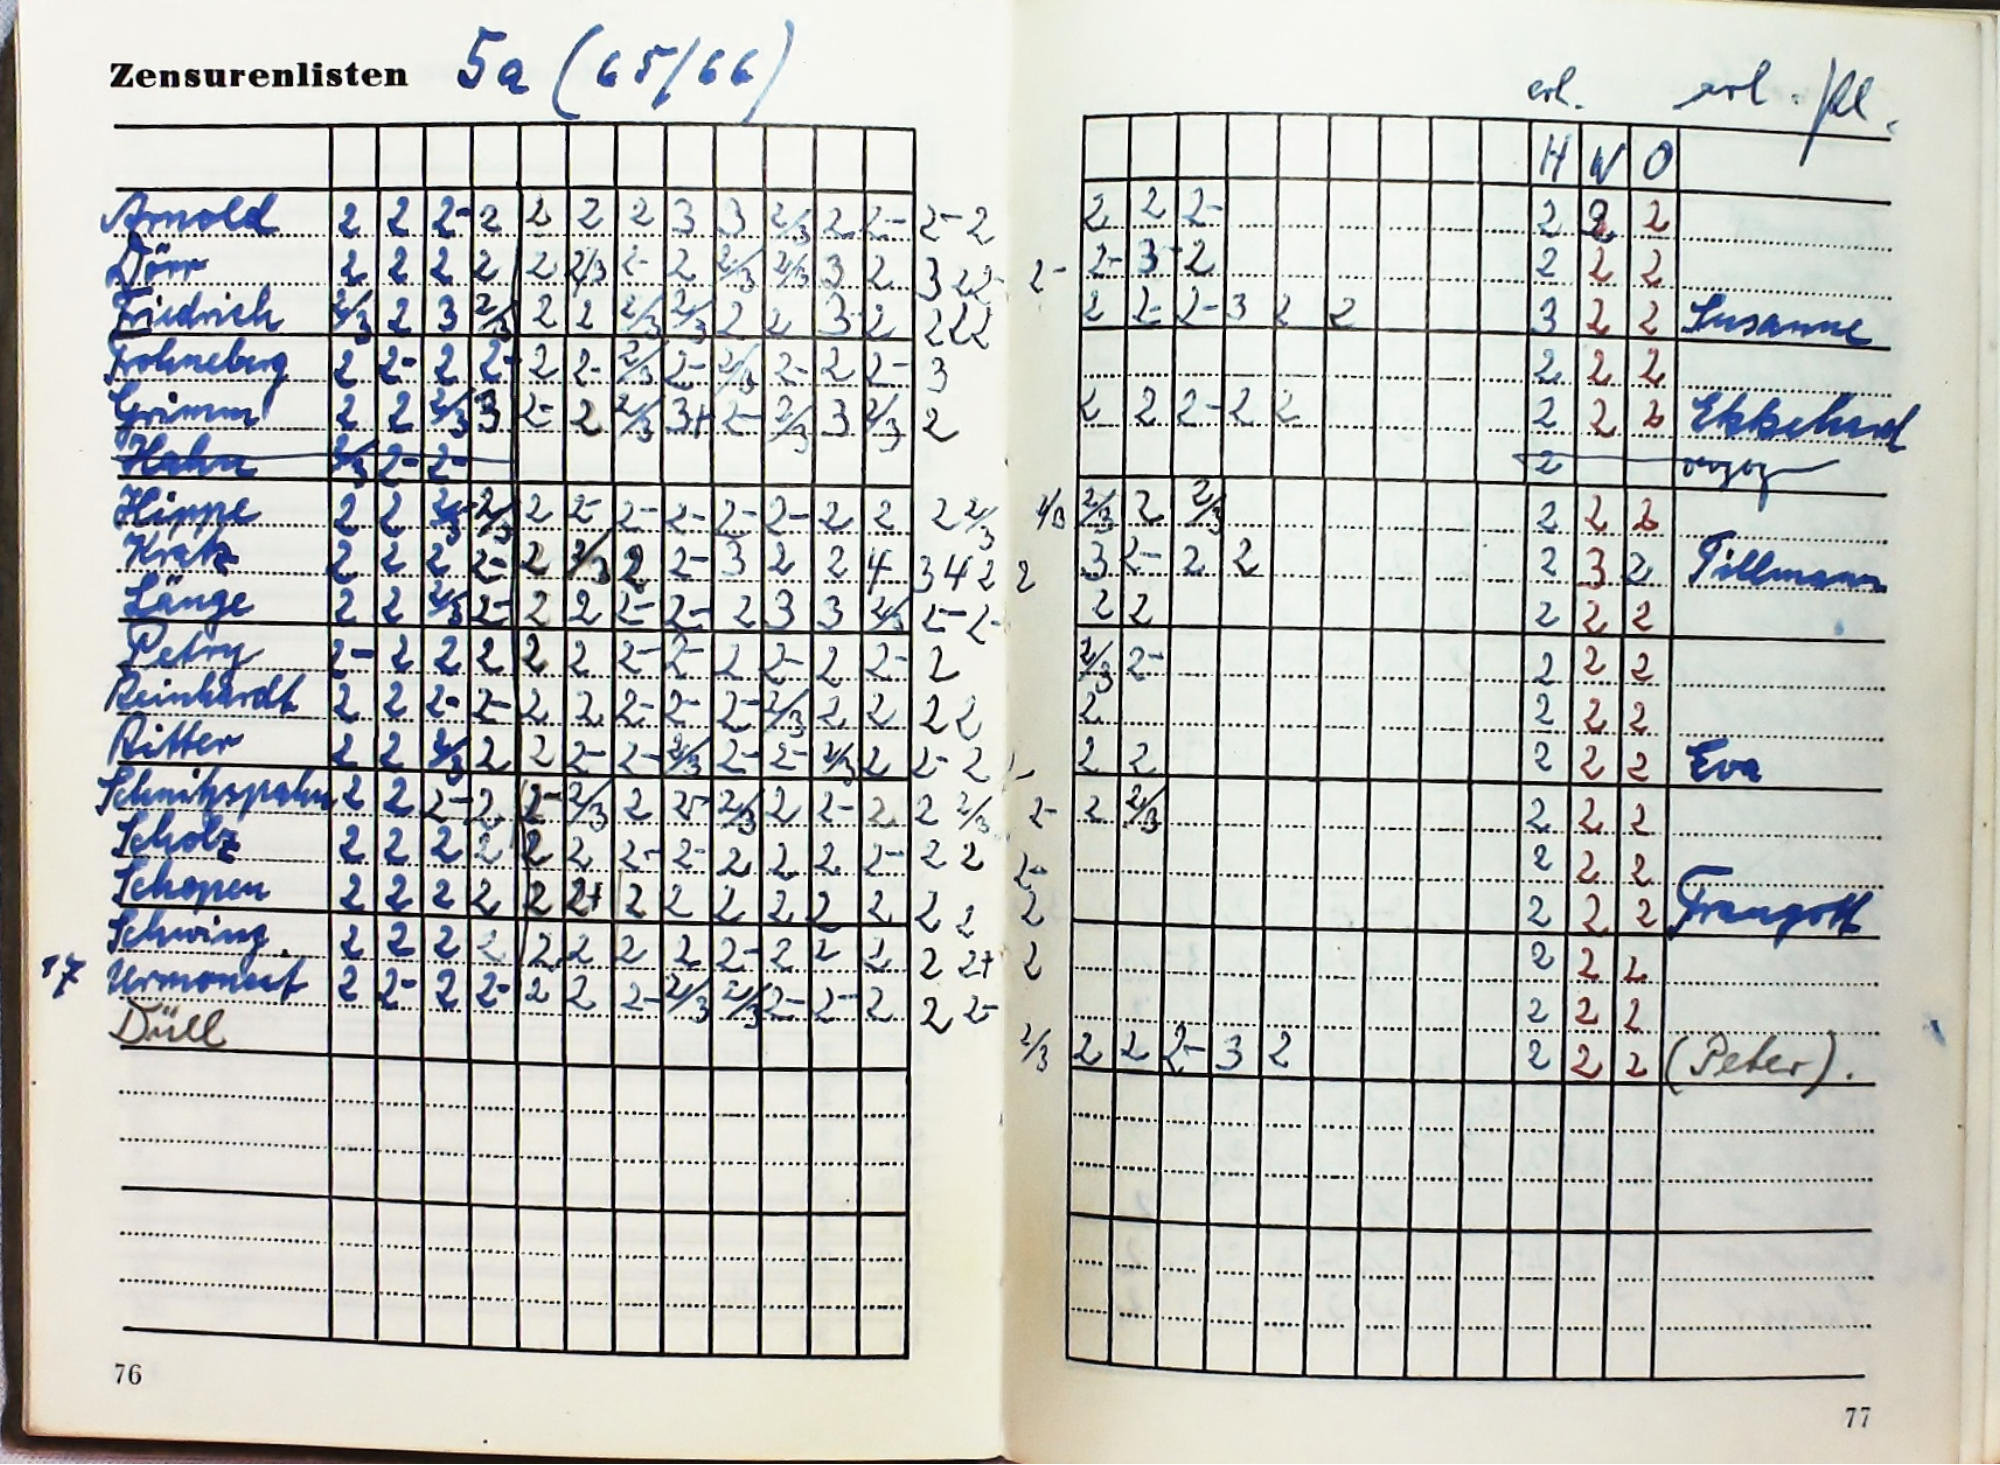 Zensurenlisten 5a (65/66)
erl. erl.
H W O
Arnold 2 2 2- 2 2 2 2 3 3 2/3 2 2- 2- 2 2 2 2- 2 2 2
Dörr 2 2 2 2 2 2/3 2- 2 2/3 2/3 3 2 3 2 2- 2- 2- 3- 2 2 2 2
Friedrich 2/3 2 3 2/3 2 2 2/3 2/3 2 2 3- 2 2 2 2 2 2- 2- 3 2 2 3 2 2 Susanne
Frohneberg 2 2- 2 2- 2 2- 2/3 2- 2/3 2- 2 2- 3 2 2 2
Grimm 2 2 2/3 3 2- 2 2/3 3+ 2- 2/3 3 2/3 2 2 2 2- 2 2 2 2 2 Ekkehard
Hahn 2/3 2- 2- 2
Hippe 2 2 2/3- 2/3 2 2- 2- 2- 2- 2- 2 2 2 2/3 2/3 2/3 2 2/3 2 2 2
Kratz 2 2 2 2- 2 2/3 2 2- 3 2 2 4 3 4 2 2 3 2- 2 2 2 3 2 Tillmann
Länge 2 2 2/3 2- 2 2 2- 2- 2 3 3 2/3 2- 2- 2 2 2 2 2
Petry 2- 2 2 2 2 2 2- 2- 2 2- 2 2- 2 2/3 2- 2 2 2
Reinhardt 2 2 2- 2- 2 2 2- 2- 2- 2/3 2 2 2 2 2 2 2 2
Ritter 2 2 2/3 2 2 2- 2- 2/3 2- 2- 2/3 2 2- 2 2 2 2 2 2 Eva
Schnitzspahn 2 2 2- 2 2- 2/3 2 2- 2/3 2 2- 2 2 2/3 2- 2 2/3 2 2 2
Scholz 2 2 2 2 2 2 2- 2- 2 2 2 2- 2 2 2- 2 2 2
Schopen 2 2 2 2 2 2+ 2 2 2 2 2 2 2 2 2 2 2 2 Traugott
Schwinz. 2 2 2 2 2 2 2 2 2- 2 2 2 2 2+ 2 2 2 2
17 Urmoneit 2 2- 2 2- 2 2 2- 2/3 2/3 2- 2- 2 2 2- 2 2 2
Düll 2/3 2 2 2- 3 2 2 2 2 (Peter).
76
77